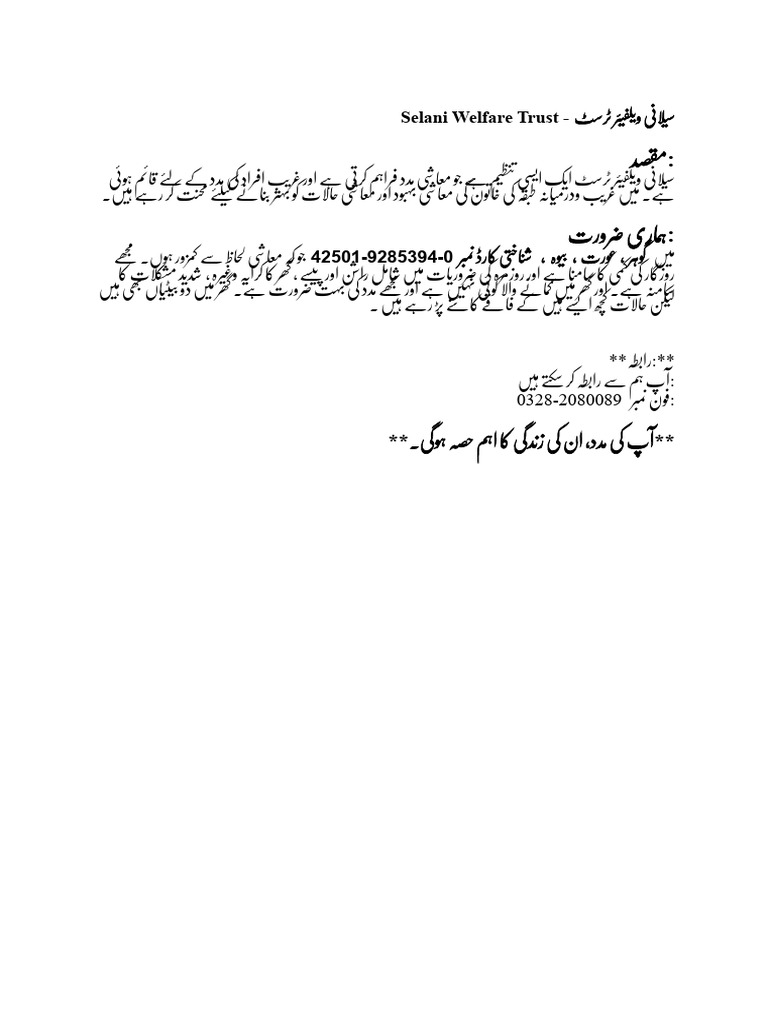 سیلانی ویلفیئر ٹرسٹ - Selani Welfare Trust
مقصد:
سیلانی ویلفیئر ٹرسٹ ایک ایسی تنظیم ہے جو معاشی مدد فراہم کرتی ہے اور غریب افراد کی مدد کے لئے قائم ہوئی
ہے۔ میں غریب ودرمیانہ طبقہ کی خاتون کی معاشی بہبود اور معاشی حالات کو بہتر بنانے کیلئے محنت کر رہے ہیں۔
ہماری ضرورت:
میں گوہر، عورت ، بیوہ ، شناختی کارڈ نمبر 42501-9285394-0 جوکہ معاشی لحاظ سے کمزور ہوں۔ مجھے
روزگار کی کمی کا سامنا ہے اور روزمرہ کی ضروریات میں شامل راشن اور پیسے ، گھر کا کرایہ وغیرہ ، شدید مشکلات کا
سامنہ ہے۔ اور گھر میں کمانے والا کوئی نہیں ہے اور مجھے مدد کی بہت ضرورت ہے۔ گھر میں دو بیٹیاں بھی ہیں
لیکن حالات کچھ ایسے ہیں کے فاقے کاٹنے پڑ رہے ہیں ۔
**رابطہ:**
آپ ہم سے رابطہ کر سکتے ہیں:
فون نمبر 0328-2080089:
**آپ کی مدد، ان کی زندگی کا اہم حصہ ہوگی۔**